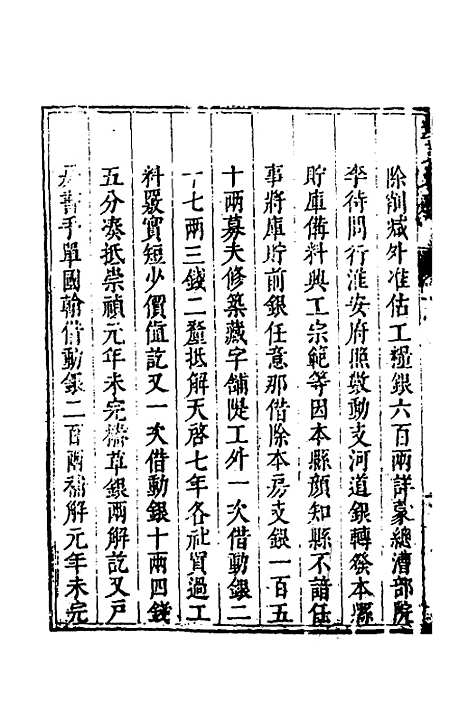 除削減外准估工糧銀六百兩詳蒙總漕部院
李待問行淮安府照數動支河道銀轉發本縣
貯庫備料興工宗範等因本縣顔知縣不諳任
事將庫貯前銀任意那借除本房支銀一百五
十兩募夫修築藏字舖隄工外一次借動銀二
十七兩三錢二釐抵解天啓七年各社買過工
料嚴實短少價值訖又一次借動銀十兩四錢
五分凑抵崇禎元年未完 草銀兩解訖又戶
書手單國翰借動銀二百兩 解元年未完